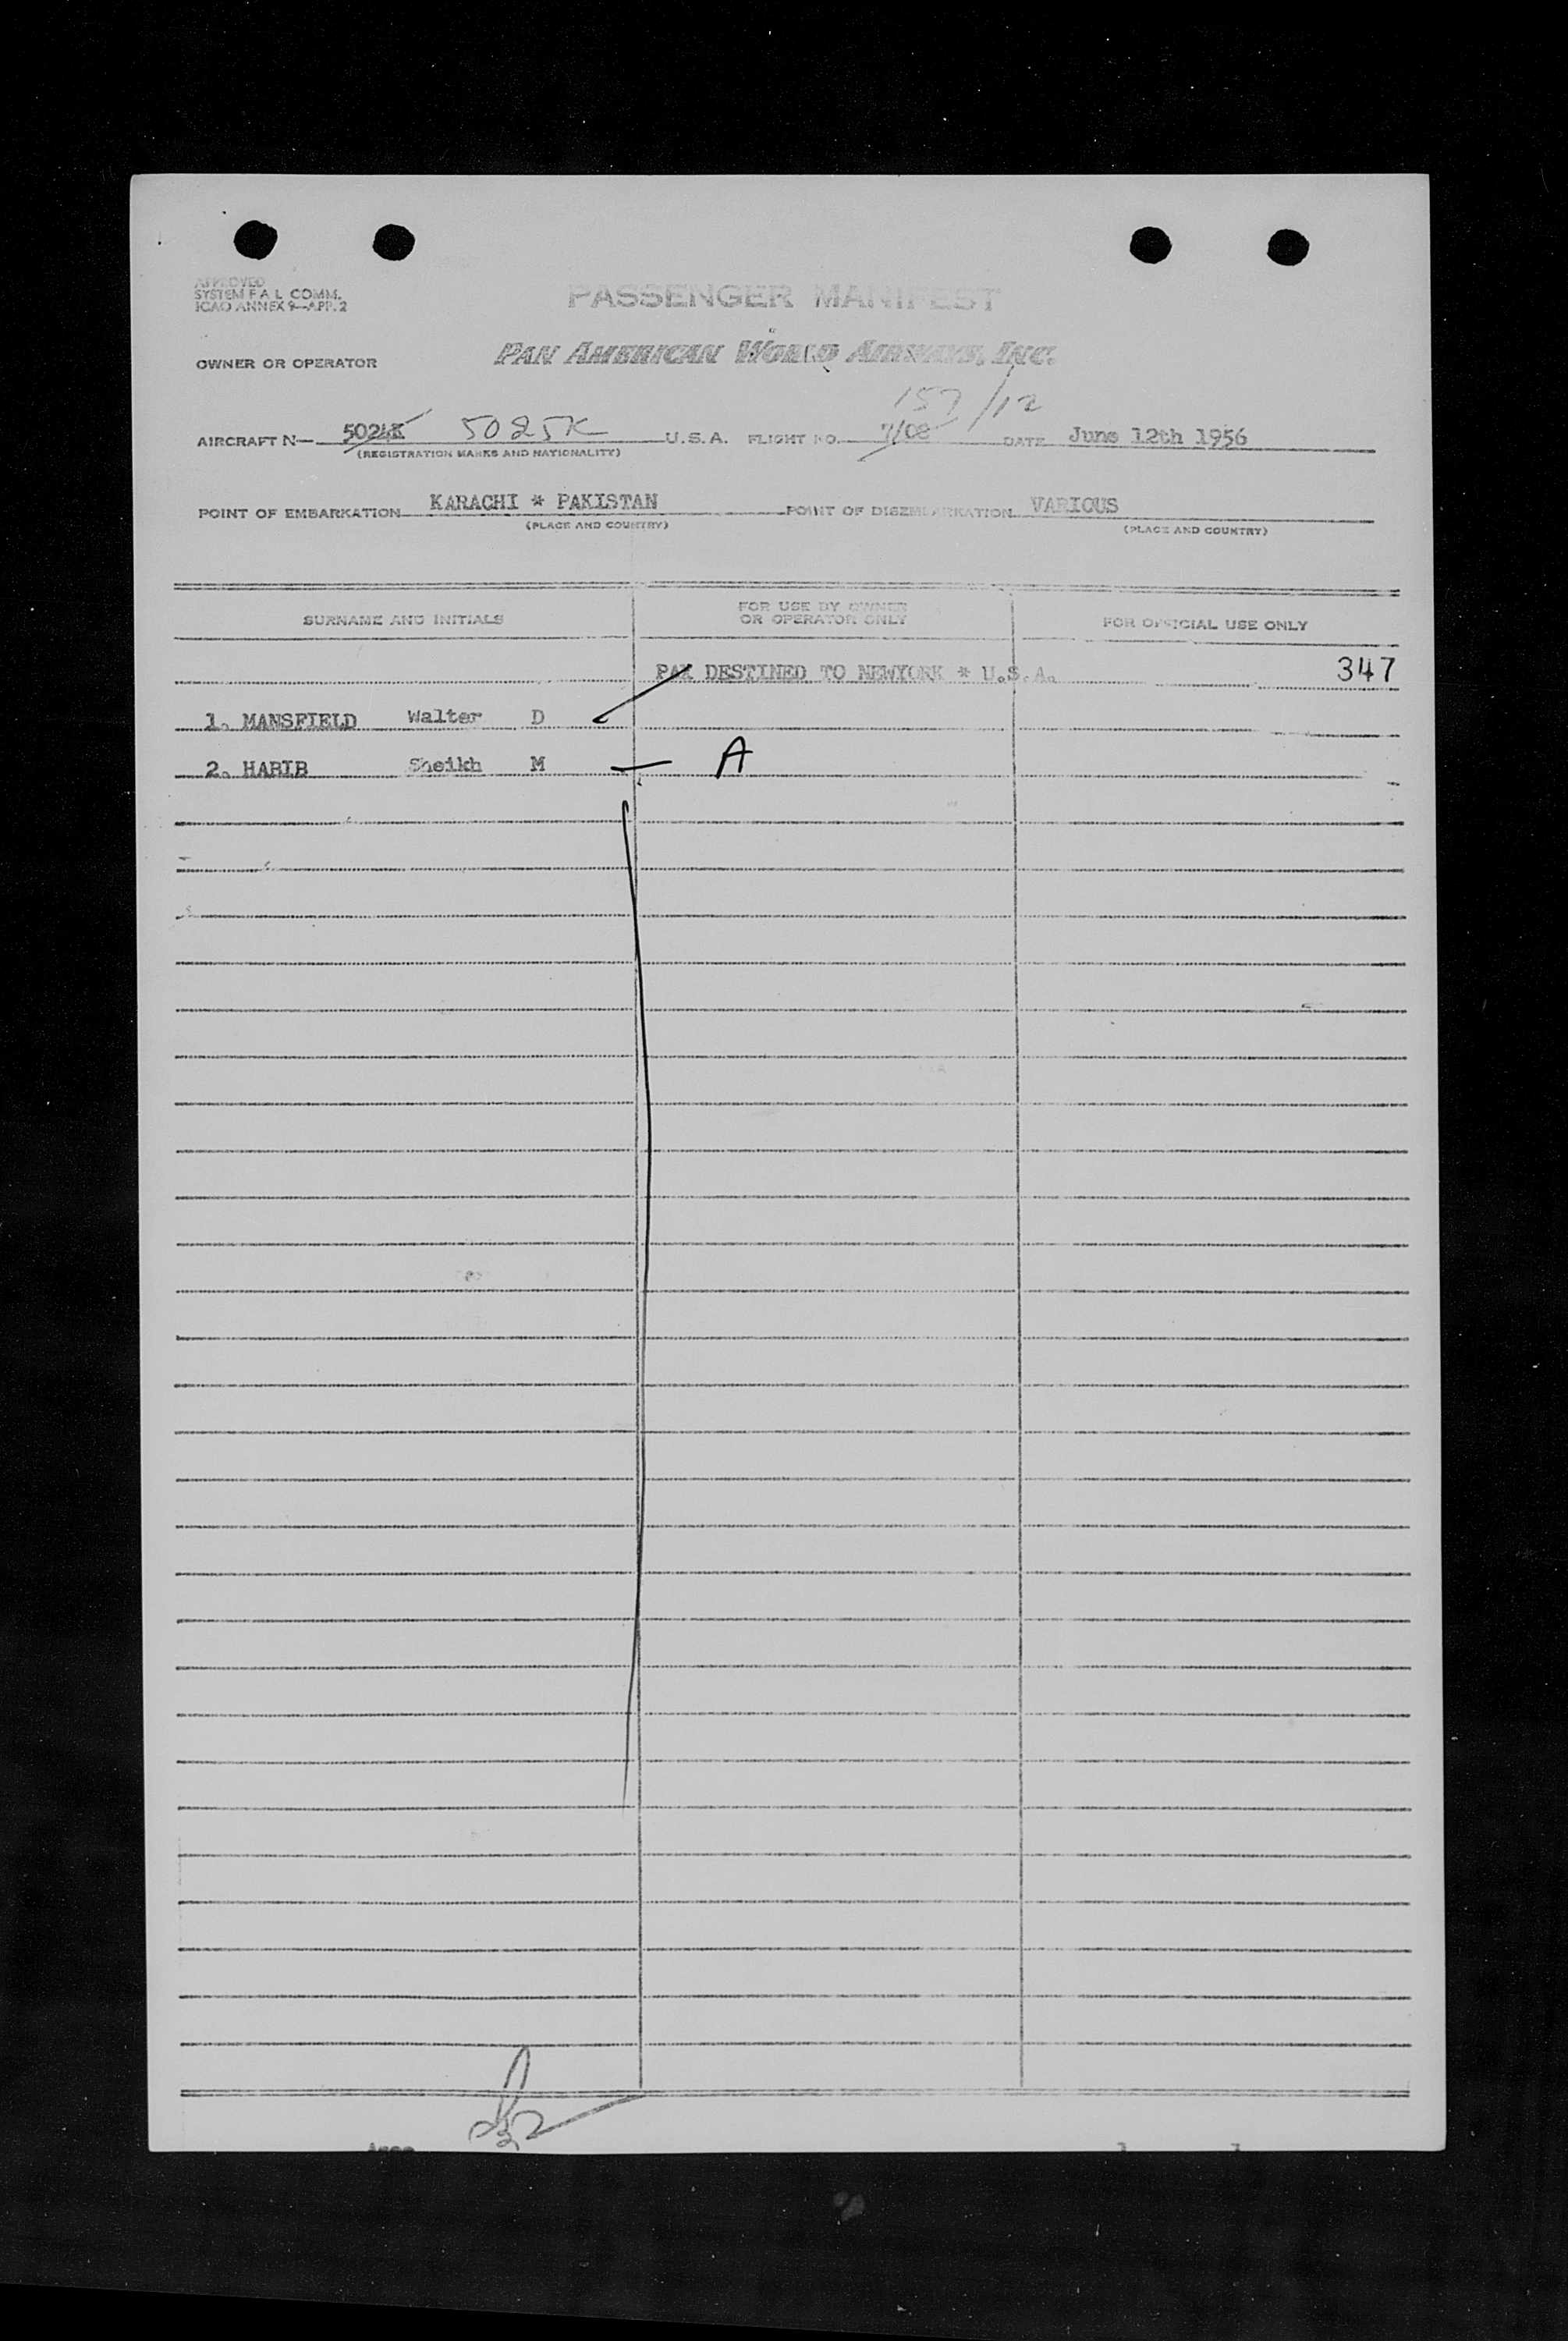 APPROVED
SYSTEM F A L COMM.
ICAO ANNEX 9—APP. 2
PASSENGER MANIFEST
OWNER OR OPERATOR PAN AMERICAN WORLD AIRWAYS, INC.
157/12
AIRCRAFT N— 5024K 5025K U.S.A. FLIGHT NO. 7/08 DATE June 12th 1956
(REGISTRATION MARKS AND NATIONALITY)
POINT OF EMBARKATION KARACHI * PAKISTAN POINT OF DISEMBARKATION VARIOUS
(PLACE AND COUNTRY) (PLACE AND COUNTRY)
SURNAME AND INITIALS FOR USE BY OWNER OR OPERATOR ONLY FOR OFFICIAL USE ONLY
PAX DESTINED TO NEWYORK * U.S.A. 347
1. MANSFIELD Walter D
2. HABIB Sheikh M — A